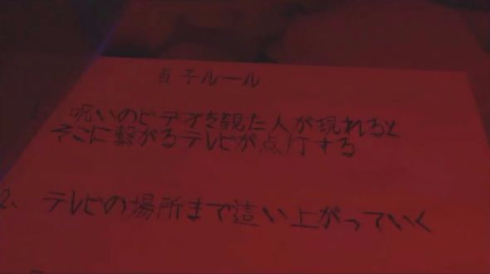 貞子ルール
呪いのビデオを観た人が現れると
そこに繋がるテレビが点灯する
2、テレビの場所まで這い上がっていく